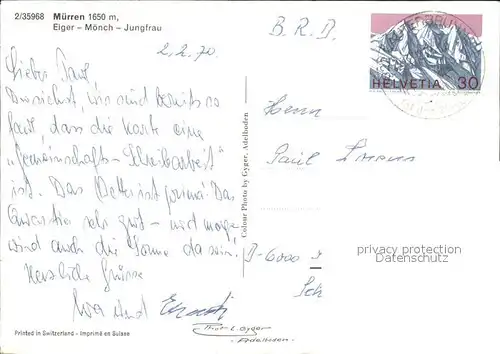 2/35968 Mürren 1650 m,
Eiger – Mönch – Jungfrau
2.2.70
B. R. D.
HELVETIA 30
Lieber Paul
Du siehst, wir sind bereits so
faul, dass die Karte eine
"Gemeinschafts-Schreibarbeit"
ist. Das Wetter ist prima. Das
sehr gut - und
wird auch die Sonne da sein.
Herzliche Grüsse
und
Herrn
Paul
D-6000
privacy protection
Datenschutz
Colour Photo by Gyger, Adelboden
Printed in Switzerland - Imprimé en Suisse
Gyger
Adelboden